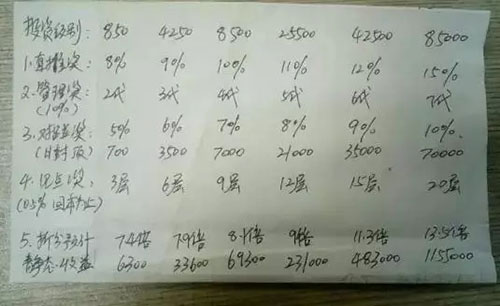 投资级别: 850 4250 8500 25500 42500 85000
1.直推奖: 8% 9% 10% 11% 12% 15%
2.管理奖: 2代 3代 4代 5代 6代 7代
(10%)
3.对碰奖: 5% 6% 7% 8% 9% 10%
(日封顶) 700 3500 7000 21000 35000 70000
4.见点奖: 3层 6层 9层 12层 15层 20层
(0.5% 回本为止)
5.拆分预计 7.4倍 7.9倍 8.1倍 9倍 11.3倍 13.5倍
静态收益 6300 33600 69300 231000 483000 1155000